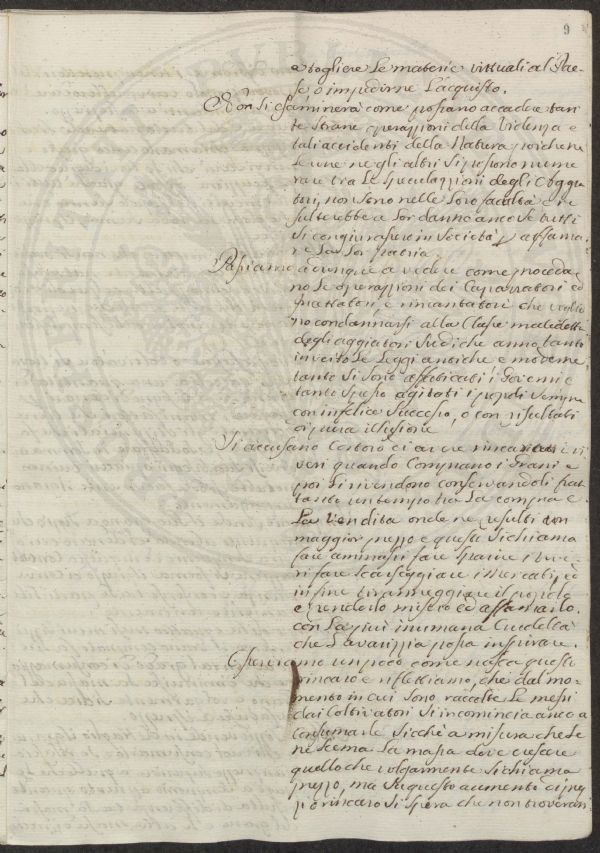 9
a togliere le materie vittuali al Pae-
se o impedirne l'acquisto.
Non si esaminerà come possano accadere tan-
te strane operazioni della Violenza e
tali accidenti della Natura poiche ne
le une ne gli altri si possono nume-
rare tra le speculazzioni degli Aggia-
tori, non sono nelle loro facoltà e re-
sulterebbe a lor danno ancose tutti
si congiurassero in Società p affama-
re la lor Patria.
Passiamo adunque a vedere come proceda-
no le operazioni dei Caparratori ed
Incettatori, e rincantatori che voglio-
no condannarsi alla Classe maledetta
degli aggiatori su di che anno tanto
inveito le Leggi antiche e moderne
tanto si sono affaticati i Governi e
tanto spesso agitati i popoli sempre
con infelice successo, o con risultati
di pura illusione
Si accusano costoro di aver rincarati i vi-
veri quando comprano i Grani e
poi li rivendono conservandoli frat-
tanto un tempo tra la compra e
la vendita onde ne resulti un
maggior prezzo e questi si chiama
fare ammassi fare sparire i vive-
ri fare scarseggiare i Mercati, ed
in fine tiranneggiare il popolo
e renderlo misero ed affamarlo.
con la più inumana Crudeltà
che l'avarizzia possa inspirare.
Osserviamo un poco come nasca questo
rincaro e riflettiamo, che dal mo-
mento in cui sono raccolte le messi
dai Coltivatori si incomincia anco a
consumarle sicche a misura che se
ne scema la massa deve crescere
quello che volgarmente si chiama
prezzo, ma su questo aumento di prez-
zo o rincaro si spera che non troveran